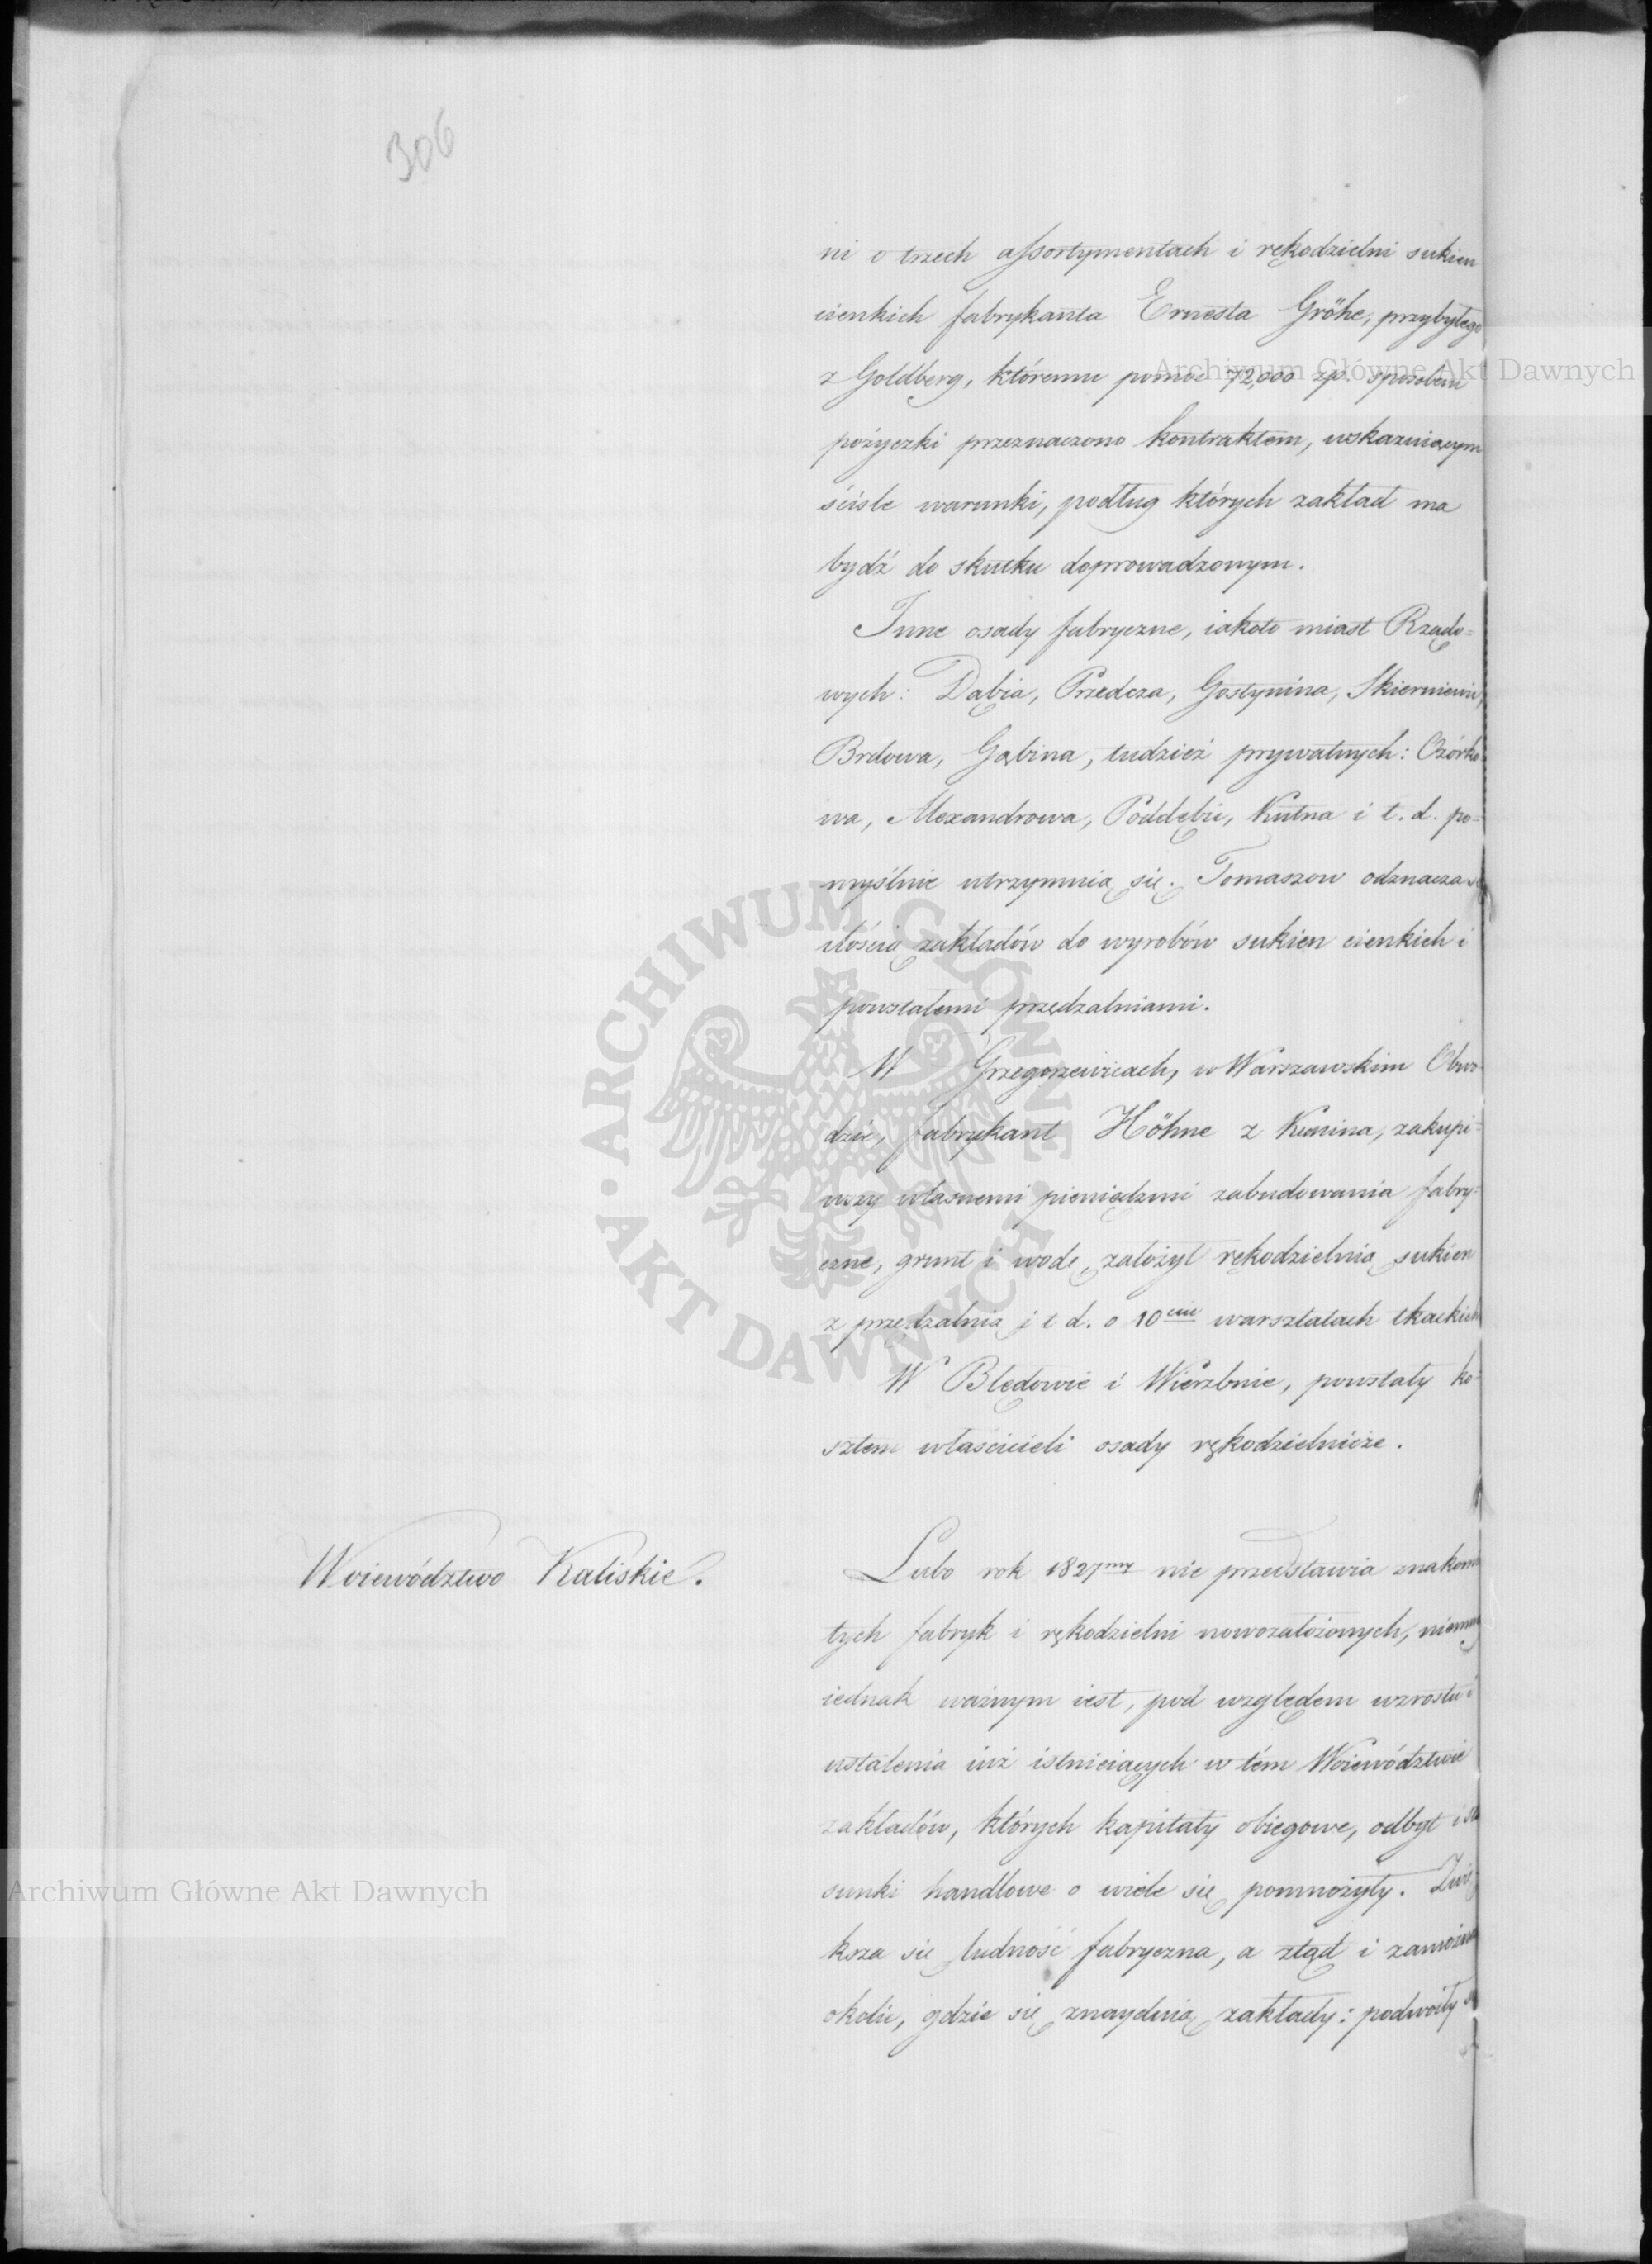 306
ni o trzech assortymentach i rękodzielni sukien
cienkich fabrykanta Ernesta Gröhe, przybyłego
z Goldberg, któremu pomoc 72,000 zp. sposobem
pożyczki przeznaczono kontraktem, wskazuiącym
ściśle warunki, podług których zakład ma
bydź do skutku doprowadzonym.
Inne osady fabryczne, iakoto miast Rządo=
wych: Dąbia, Przedcza, Gostynina, Skierniewic,
Brdowa, Gąbina, tudzież prywatnych: Ozórko
wa, Alexandrowa, Poddębic, Kutna i t. d. po=
myślnie utrzymuią się. Tomaszow odznacza się
ilością zakładów do wyrobów sukien cienkich i
powstałemi przędzalniami.
W Grzegorzewicach, w Warszawskim Obwo
dzie, fabrykant Höhne z Konina, zakupi=
wszy własnemi pieniędzmi zabudowania fabry=
czne, grunt i wodę, założył rękodzielnią sukien
z przędzalnią i t d. o 10ciu warsztatach tkackich
W Błędowie i Wierzbnie, powstały ko=
sztem właścicieli osady rękodzielnicze.
Woiewództwo Kaliskie.
Lubo rok 1827my nie przedstawia znakomi
tych fabryk i rękodzielni nowozałożonych, niemniey
iednak ważnym iest, pod względem wzrostu i
ustalenia iuż istnieiących w tém Woiewództwie
zakładów, których kapitały obiegowe, odbyt i sto
sunki handlowe o wiele się pomnożyły. Zwię
ksza się ludność fabryczna, a ztąd i zamożność
okolic, gdzie się znayduią zakłady: podwoiły się
Archiwum Główne Akt Dawnych
Archiwum Główne Akt Dawnych
ARCHIWUM GŁÓWNE · AKT DAWNYCH ·